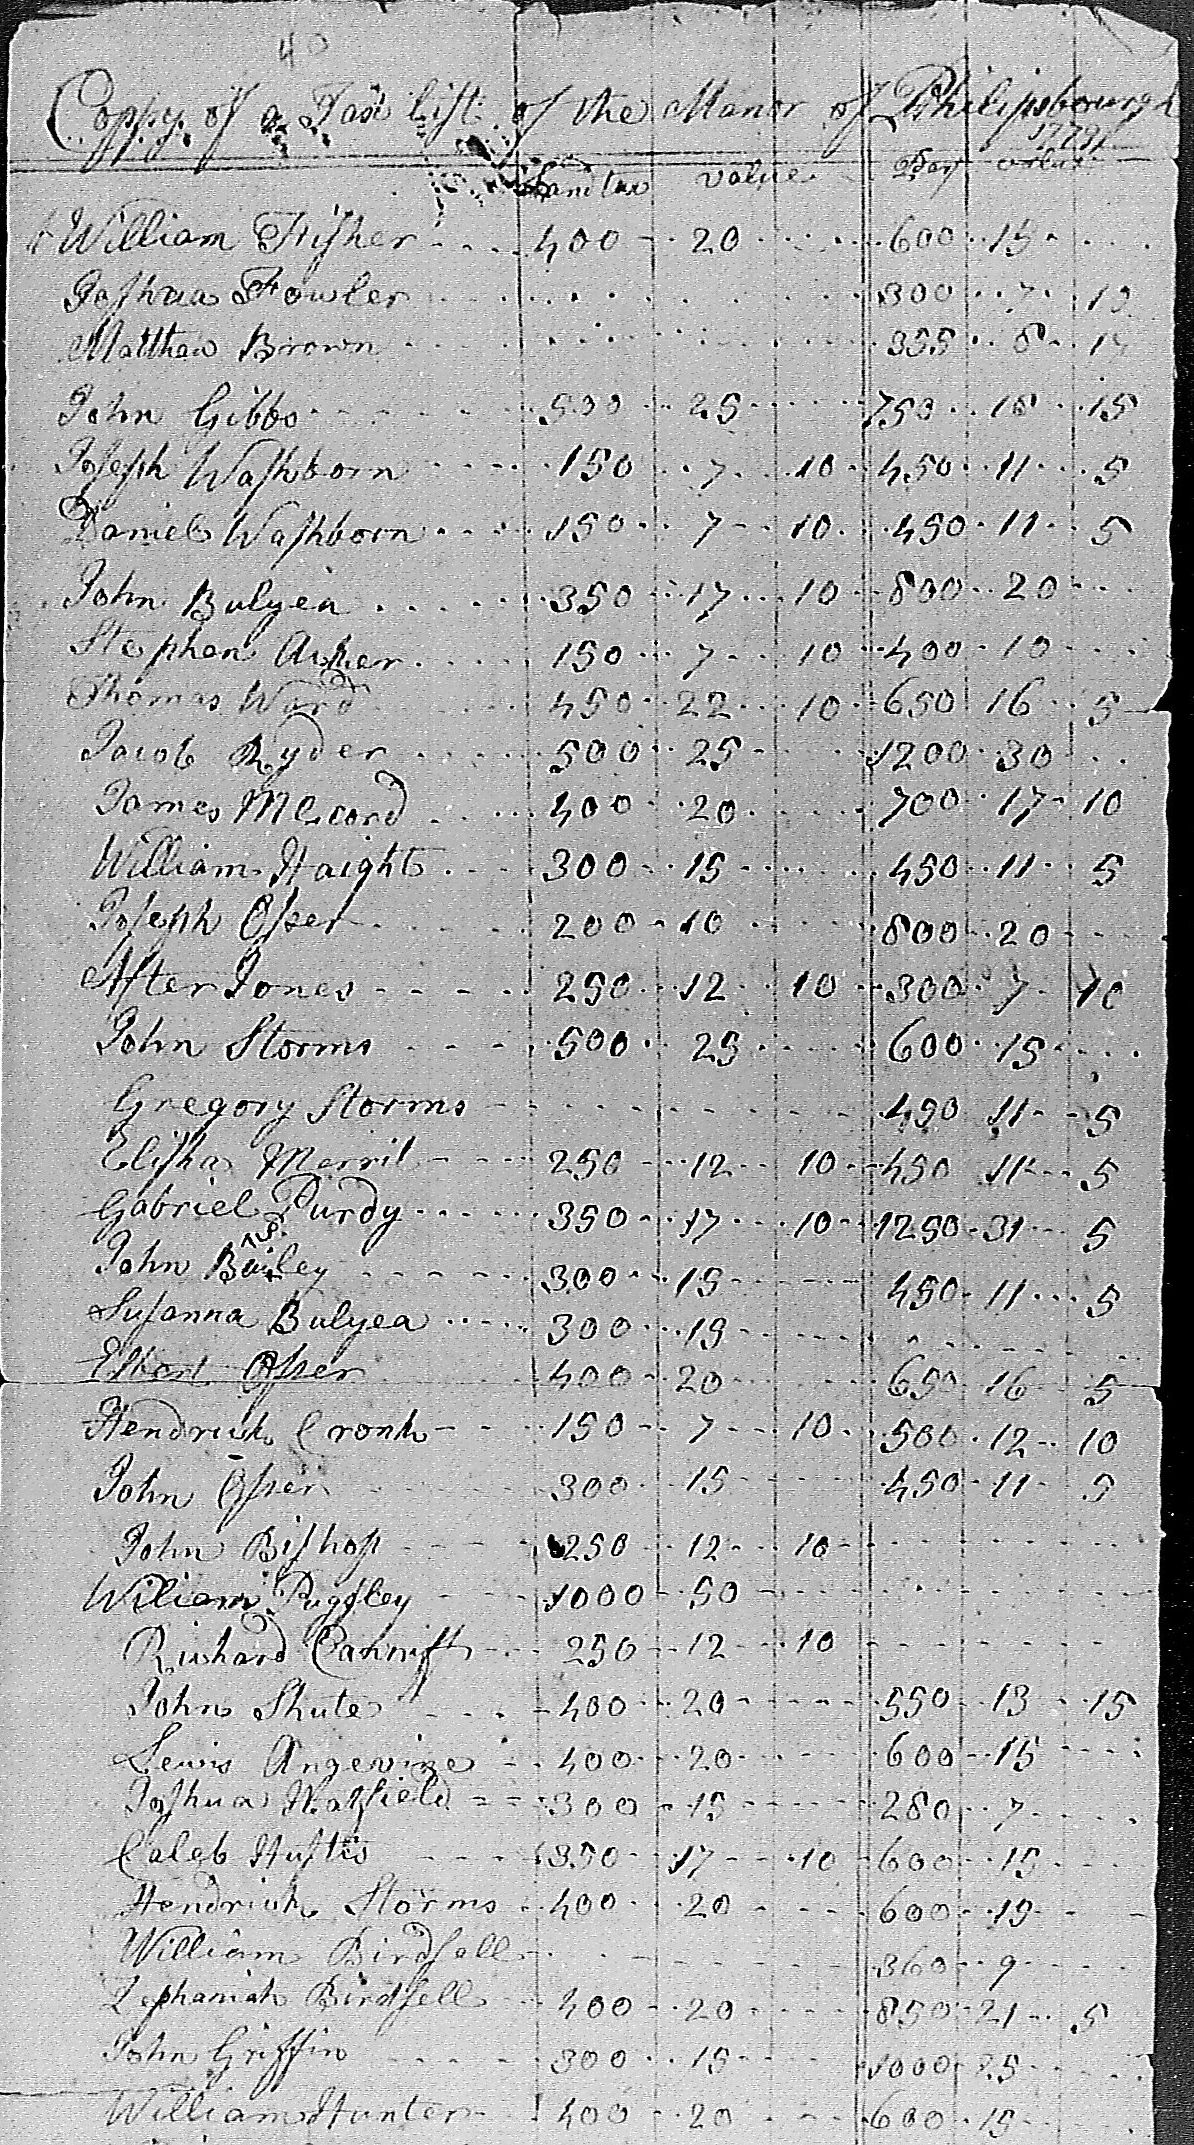 40
Coppy of a Tax list of the Manor of Philipsbourgh
1779
Land tax value value
William Fisher 400 20 600 15
Joshua Fowler 300 7 10
Matthew Brown 355 8
John Gibbs 500 25 750 18 15
Joseph Washborn 150 7 10 450 11 5
Daniel Washborn 150 7 10 450 11 5
John Bulyea 350 17 10 800 20
Stephen Acker 150 7 10 400 10
Thomas Ward 450 22 10 650 16 5
Jacob Ryder 500 25 1200 30
James McCord 400 20 700 17 10
William Haight 300 15 450 11 5
Joseph Osser 200 10 800 20
After Jones 250 12 10 300 7 10
John Storms 500 25 600 15
Gregory Storms 450 11 5
Elisha Merril 250 12 10 450 11 5
Gabriel Purdy 350 17 10 1250 31 5
John Bailey 300 15 450 11 5
Susanna Bulyea 300 15
Elbert Osser 400 20 650 16 5
Hendrick Cronk 150 7 10 500 12 10
John Osser 300 15 450 11 5
John Bishop 250 12 10
William Pugsley 1000 50
Richard Canniff 250 12 10
John Shute 400 20 550 13 15
Lewis Angevine 400 20 600 15
Joshua Hatfield 300 15 280 7
Caleb Hustis 350 17 10 600 15
Hendrick Storms 400 20 600 15
William Birdsell 360 9
Zephaniah Birdsell 400 20 850 21 5
John Griffin 300 15 1000 25
William Hunter 400 20 600 15